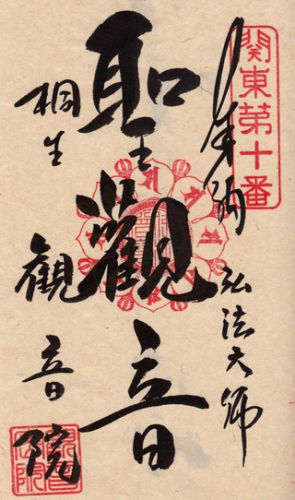 関東第十番
奉納 弘法大师
聖觀音
桐生
觀音院